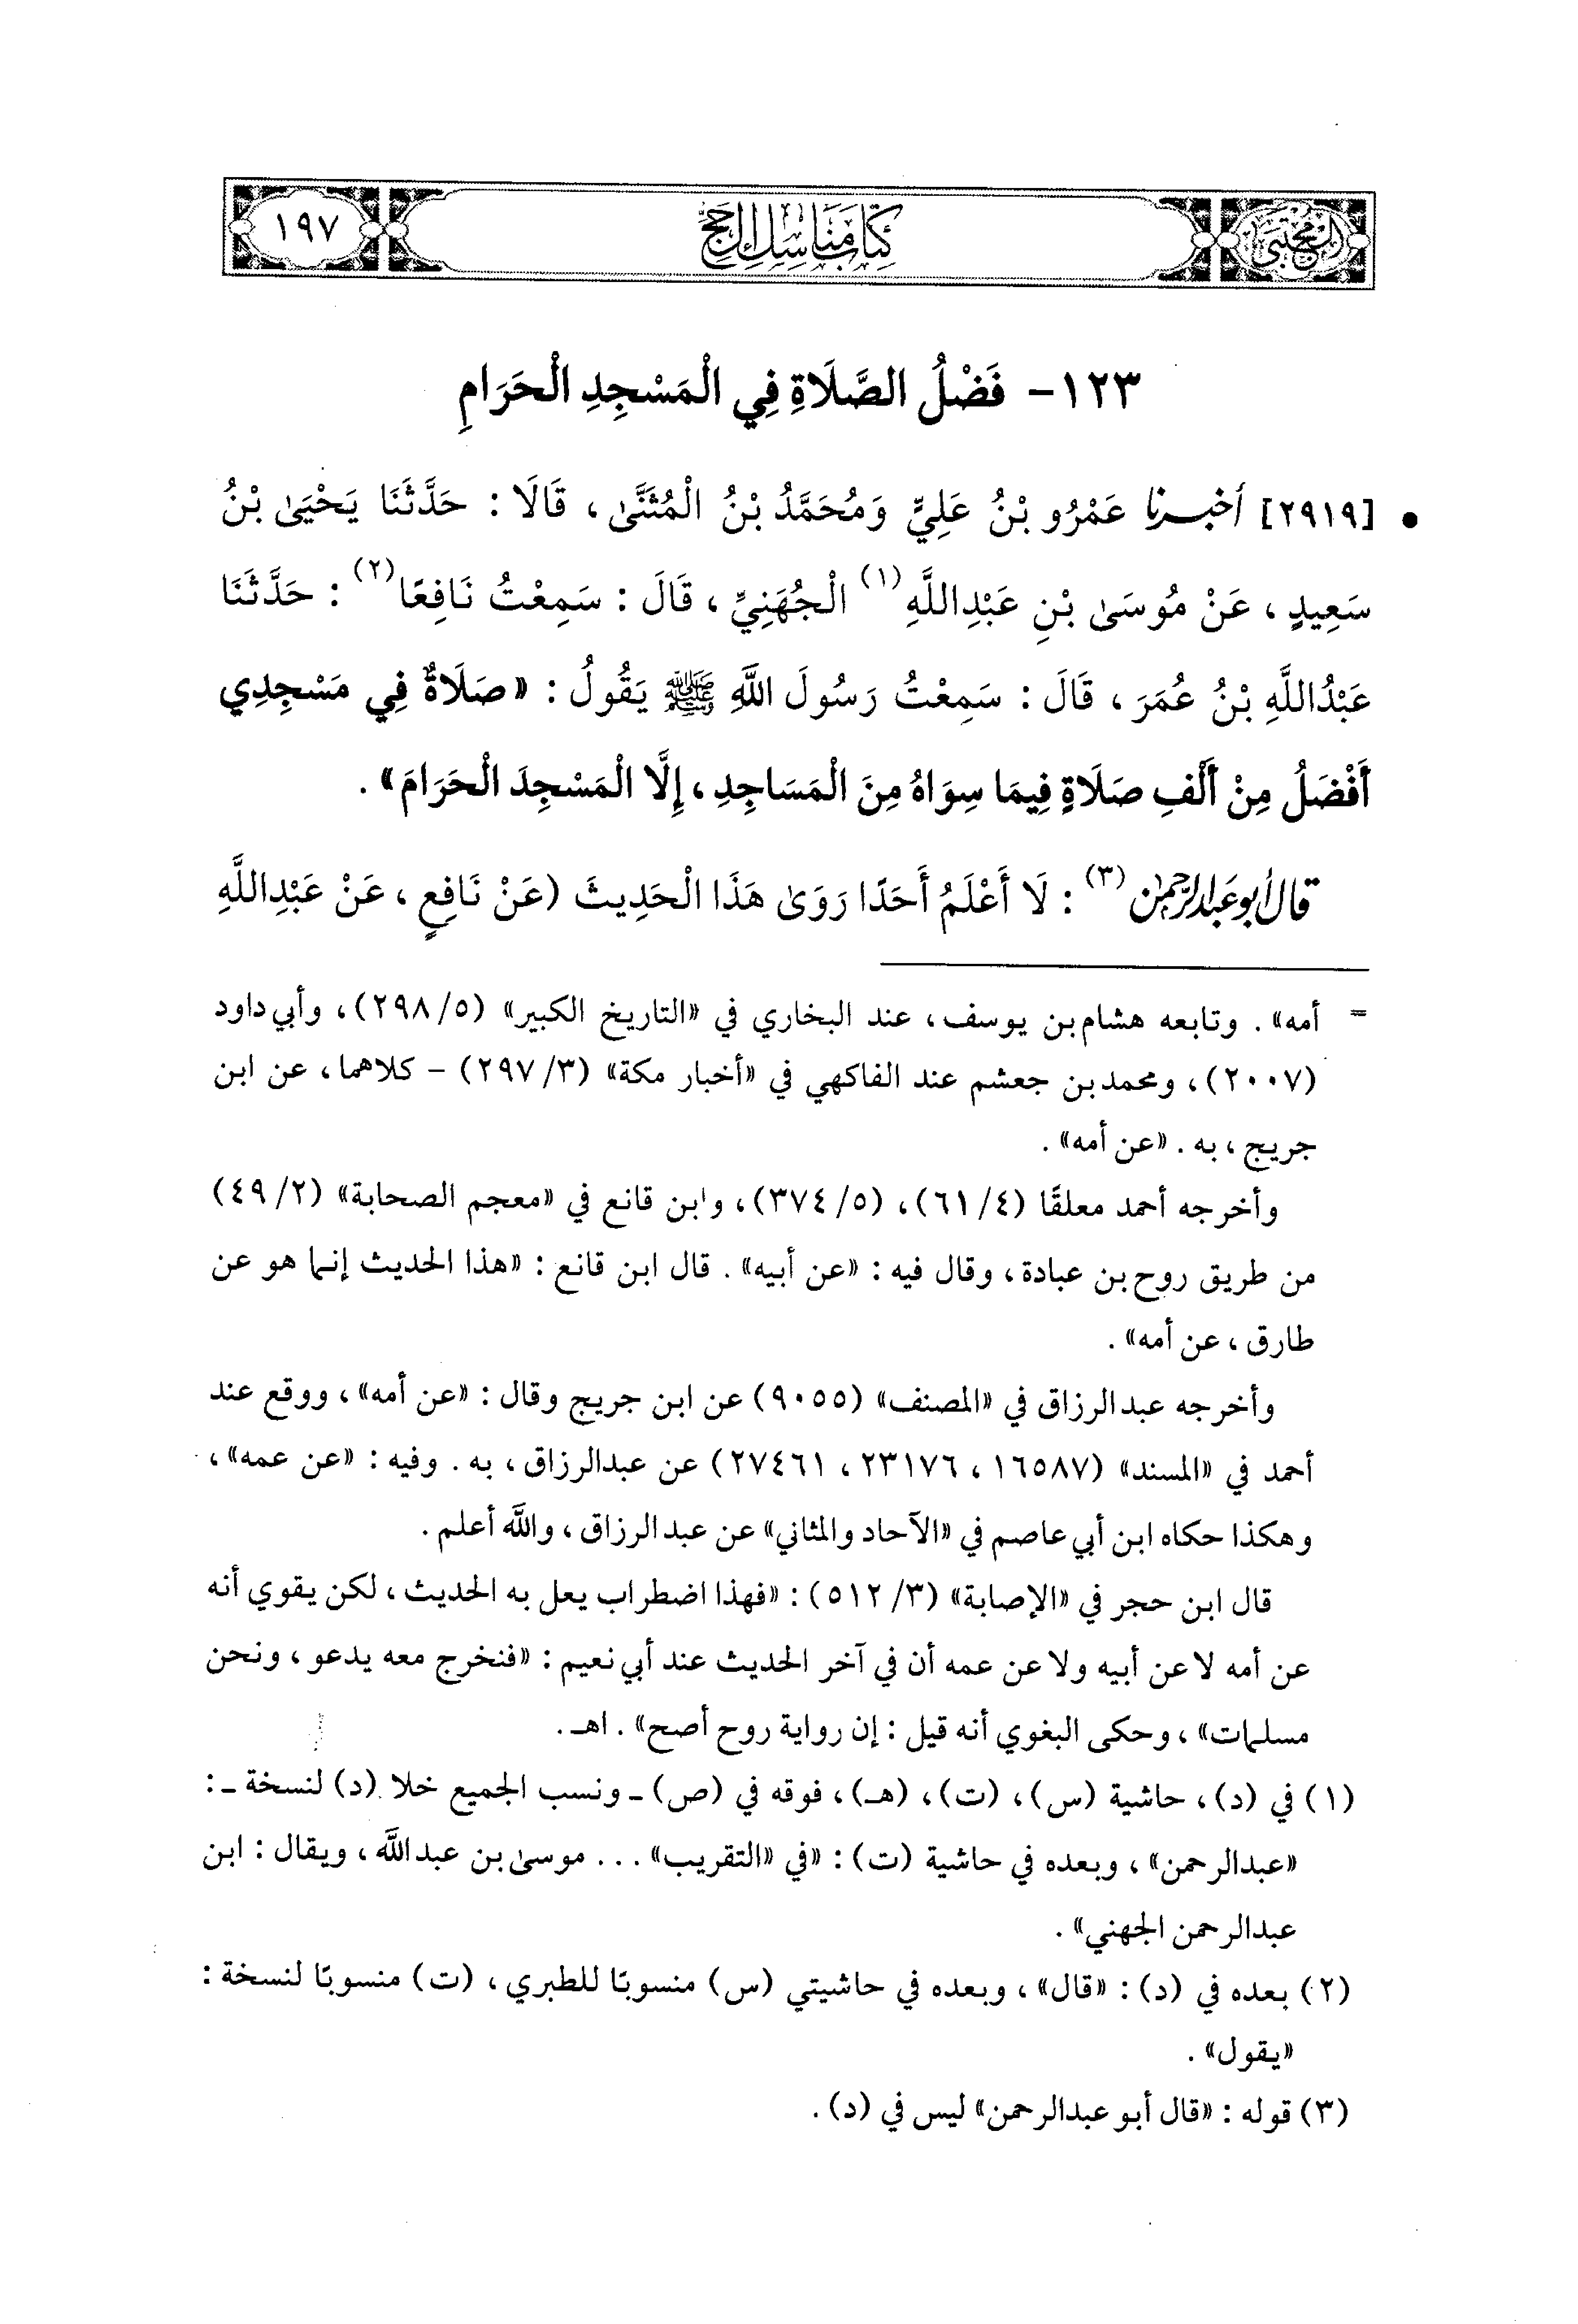 المجتبى
كتاب مناسك الحج
١٩٧
١٢٣- فَضْلُ الصَّلَاةِ فِي الْمَسْجِدِ الْحَرَامِ
• [٢٩١٩] أخبرنا عَمْرُو بْنُ عَلِيٍّ وَمُحَمَّدُ بْنُ الْمُثَنَّىٰ، قَالَا: حَدَّثَنَا يَحْيَىٰ بْنُ
سَعِيدٍ، عَنْ مُوسَىٰ بْنِ عَبْدِاللَّهِ(١) الْجُهَنِيِّ، قَالَ: سَمِعْتُ نَافِعًا(٢): حَدَّثَنَا
عَبْدُاللَّهِ بْنُ عُمَرَ، قَالَ: سَمِعْتُ رَسُولَ اللَّهِ ﷺ يَقُولُ: «صَلَاةٌ فِي مَسْجِدِي
أَفْضَلُ مِنْ أَلْفِ صَلَاةٍ فِيمَا سِوَاهُ مِنَ الْمَسَاجِدِ، إِلَّا الْمَسْجِدَ الْحَرَامَ».
قال أبو عبد الرحمن(٣): لَا أَعْلَمُ أَحَدًا رَوَىٰ هَذَا الْحَدِيثَ (عَنْ نَافِعٍ، عَنْ عَبْدِاللَّهِ
= أمه». وتابعه هشام بن يوسف، عند البخاري في «التاريخ الكبير» (٥/ ٢٩٨)، وأبي داود
(٢٠٠٧)، ومحمد بن جعشم عند الفاكهي في «أخبار مكة» (٣/ ٢٩٧) - كلاهما، عن ابن
جريج، به. «عن أمه».
وأخرجه أحمد معلقًا (٤/ ٦١)، (٥/ ٣٧٤)، وابن قانع في «معجم الصحابة» (٢/ ٤٩)
من طريق روح بن عبادة، وقال فيه: «عن أبيه». قال ابن قانع: «هذا الحديث إنما هو عن
طارق، عن أمه».
وأخرجه عبدالرزاق في «المصنف» (٩٠٥٥) عن ابن جريج وقال: «عن أمه»، ووقع عند
أحمد في «المسند» (١٦٥٨٧، ٢٣١٧٦، ٢٧٤٦١) عن عبدالرزاق، به. وفيه: «عن عمه»،
وهكذا حكاه ابن أبي عاصم في «الآحاد والمثاني» عن عبد الرزاق، واللَّه أعلم.
قال ابن حجر في «الإصابة» (٣/ ٥١٢): «فهذا اضطراب يعل به الحديث، لكن يقوي أنه
عن أمه لا عن أبيه ولا عن عمه أن في آخر الحديث عند أبي نعيم: «فنخرج معه يدعو، ونحن
مسلمات»، وحكى البغوي أنه قيل: إن رواية روح أصح». اهـ.
(١) في (د)، حاشية (س)، (ت)، (هـ)، فوقه في (ص) ـ ونسب الجميع خلا (د) لنسخة ـ:
«عبدالرحمن»، وبعده في حاشية (ت): «في «التقريب»... موسىٰ بن عبداللَّه، ويقال: ابن
عبدالرحمن الجهني».
(٢) بعده في (د): «قال»، وبعده في حاشيتي (س) منسوبًا للطبري، (ت) منسوبًا لنسخة:
«يقول».
(٣) قوله: «قال أبو عبدالرحمن» ليس في (د).